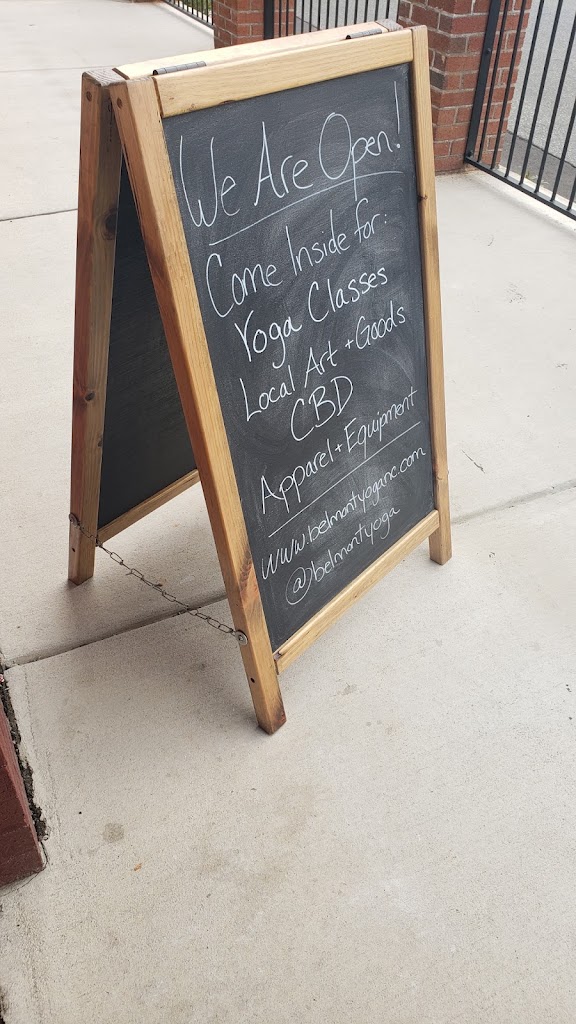 We Are Open!
Come Inside for:
Yoga Classes
Local Art + Goods
CBD
Apparel + Equipment
www.belmontyoganc.com
@belmontyoga